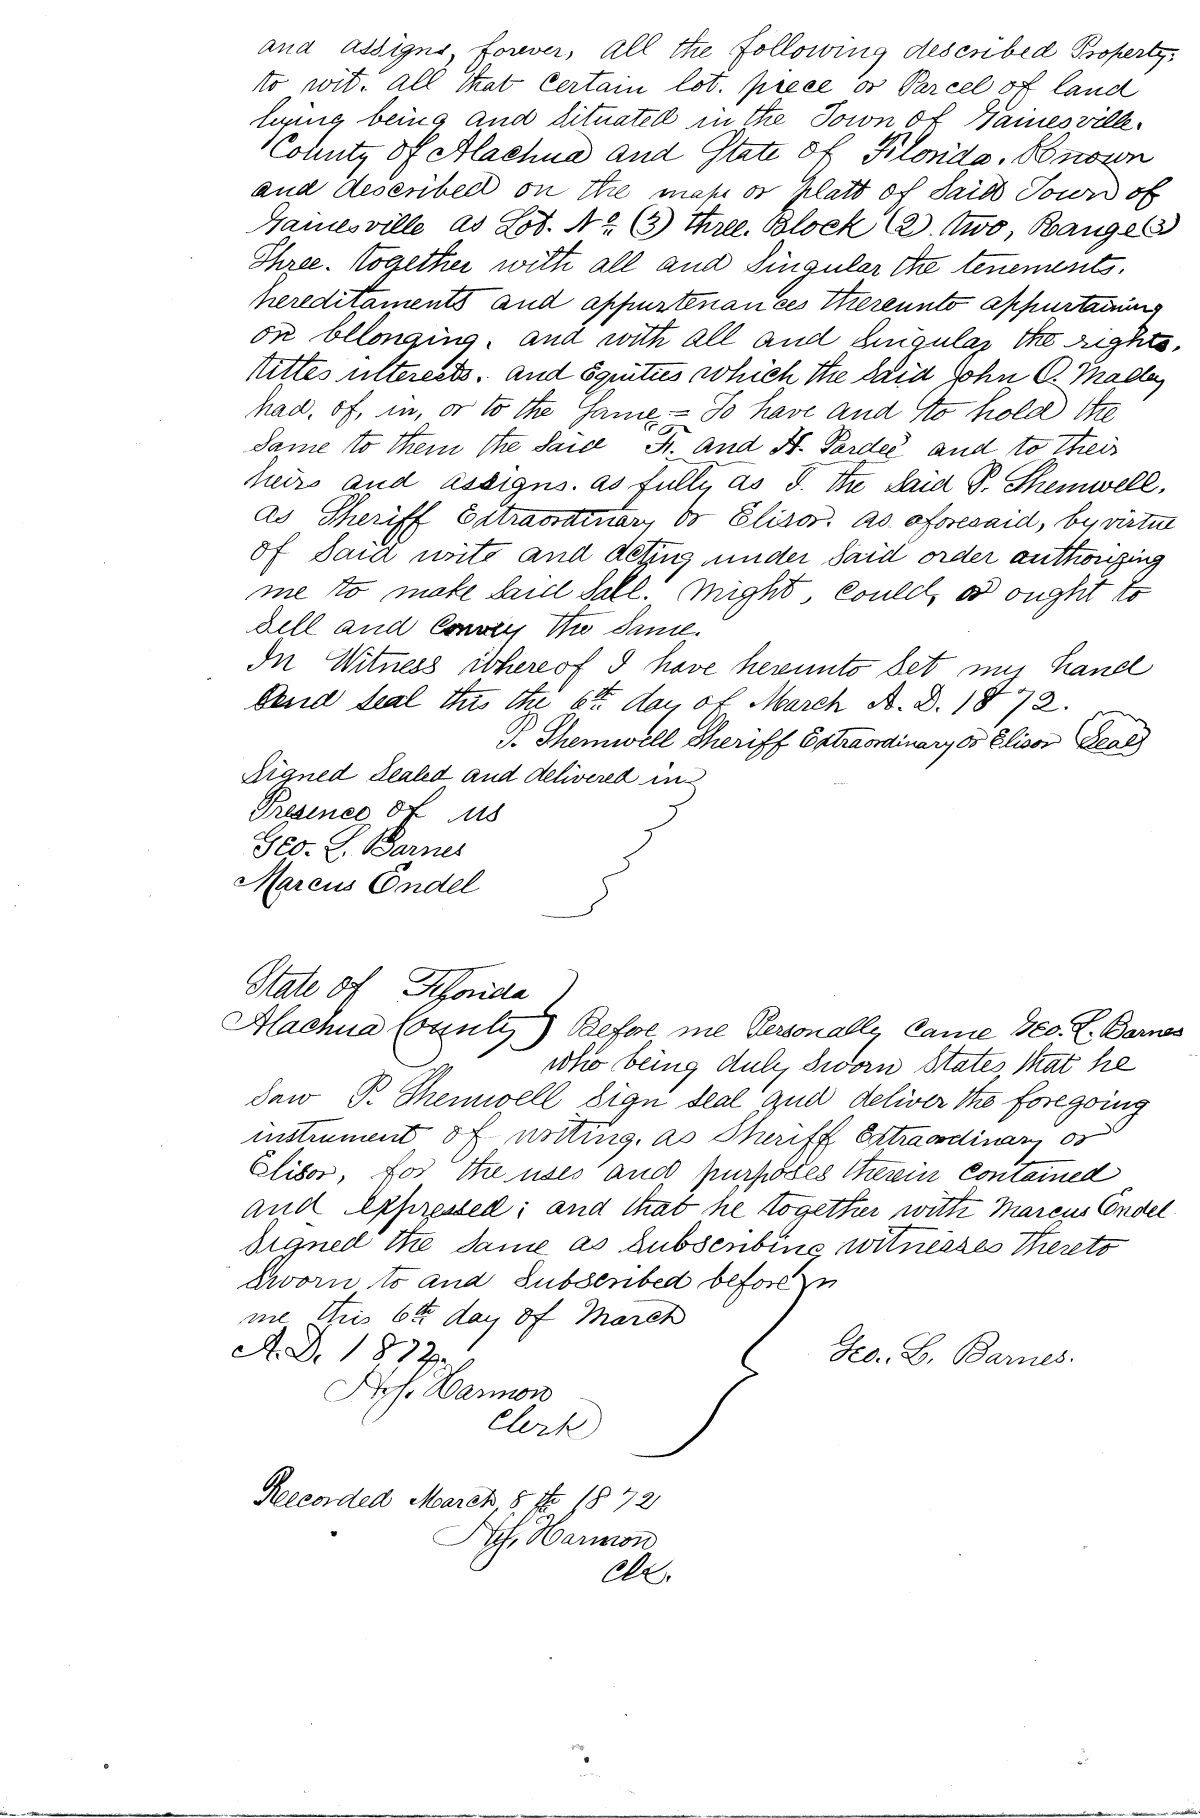 and assigns, forever, all the following described Property;
to wit. all that certain lot. piece or Parcel of land
lying being and situated in the Town of Gainesville.
County of Alachua and State of Florida. Known
and described on the maps or platt of Said Town of
Gainesville as Lot. No. (3) three. Block (2). two, Range (3)
Three. together with all and Singular the tenements.
hereditaments and appurtenances thereunto appurtaining
or bellonging. and with all and Singular the rights,
tittes interests. and Equities which the Said John C. Malley
had, of, in, or to the Same = To have and to hold the
Same to them the Said "F. and H. Pardee" and to their
heirs and assigns. as fully as I. the Said P. Shemwell.
as Sheriff Extraordinary or Elisor. as aforesaid, by virtue
of Said write and acting under Said order authorizing
me to make Said Sall. Might, Could, or ought to
Sell and Convey the Same.
In Witness whereof I have hereunto Set my hand
and Seal this the 6th day of March A. D. 1872.
P. Shemwell Sheriff Extraordinary or Elisor Seal
Signed Sealed and delivered in
Presence of us
Geo. L. Barnes
Marcus Endel
State of Florida
Alachua County Before me Personally Came Geo. L. Barnes
who being duly Sworn States that he
Saw P. Shemwell Sign Seal and deliver the foregoing
instrument of writing. as Sheriff Extraordinary or
Elisor, for the uses and purposes therein Contained
and Expressed; and that he together with Marcus Endel
Signed the Same as Subscribing witnesses thereto
Sworn to and Subscribed before
me this 6th day of March
A. D. 1872. Geo. L. Barnes.
Harmon
Clerk
Reecorded March 8th 1872
Harmon
Clk.